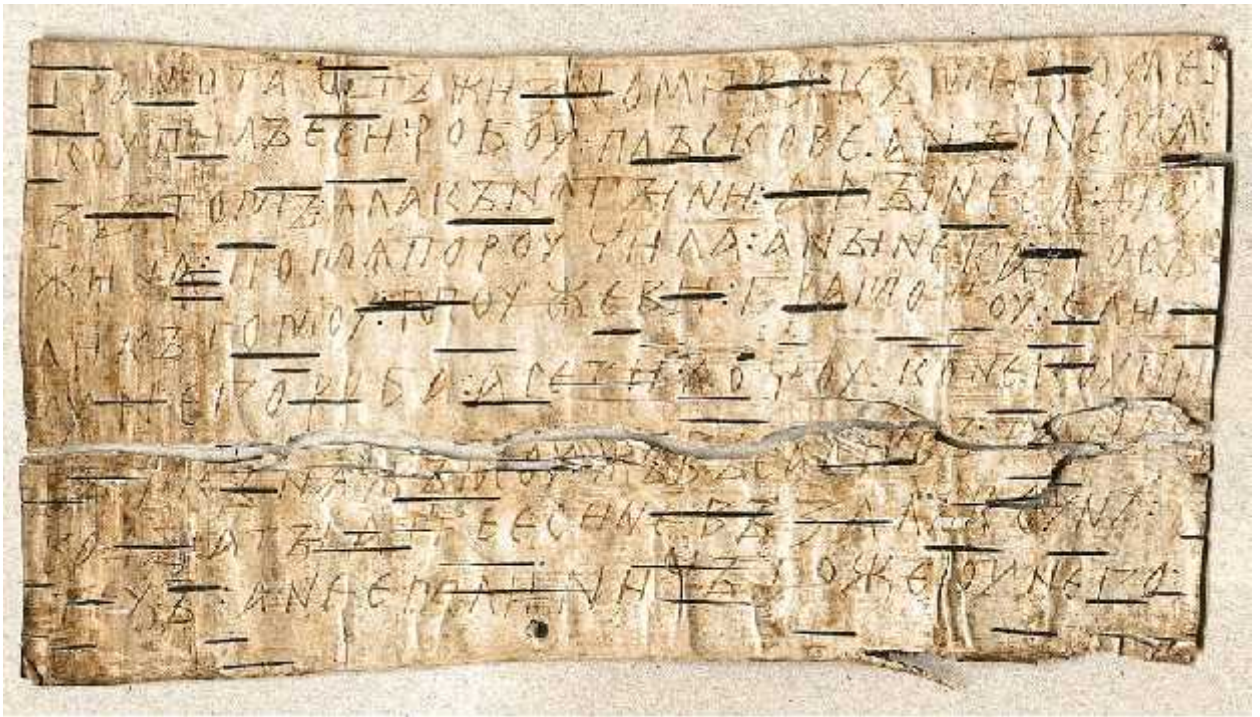 грамота : ѡтъ жизномира : къ микоуле :
коупилъ еси : робоу : плъскове : а ныне мѧ :
въ томъ : ѧла кънѧгыни : а ныне сѧ дроу
жина : по мѧ пороучила : а ныне ка : посъ
ли къ томоу : моужеви : грамотоу : е ли
оу него роба : а се ти : хочоу : коне коупи
въ : и кънѧжъ моужъ въсадивъ : та на съ
воды : а ты атче еси не възалъ коунъ :
техъ : а не емли : ничъто же оу него :